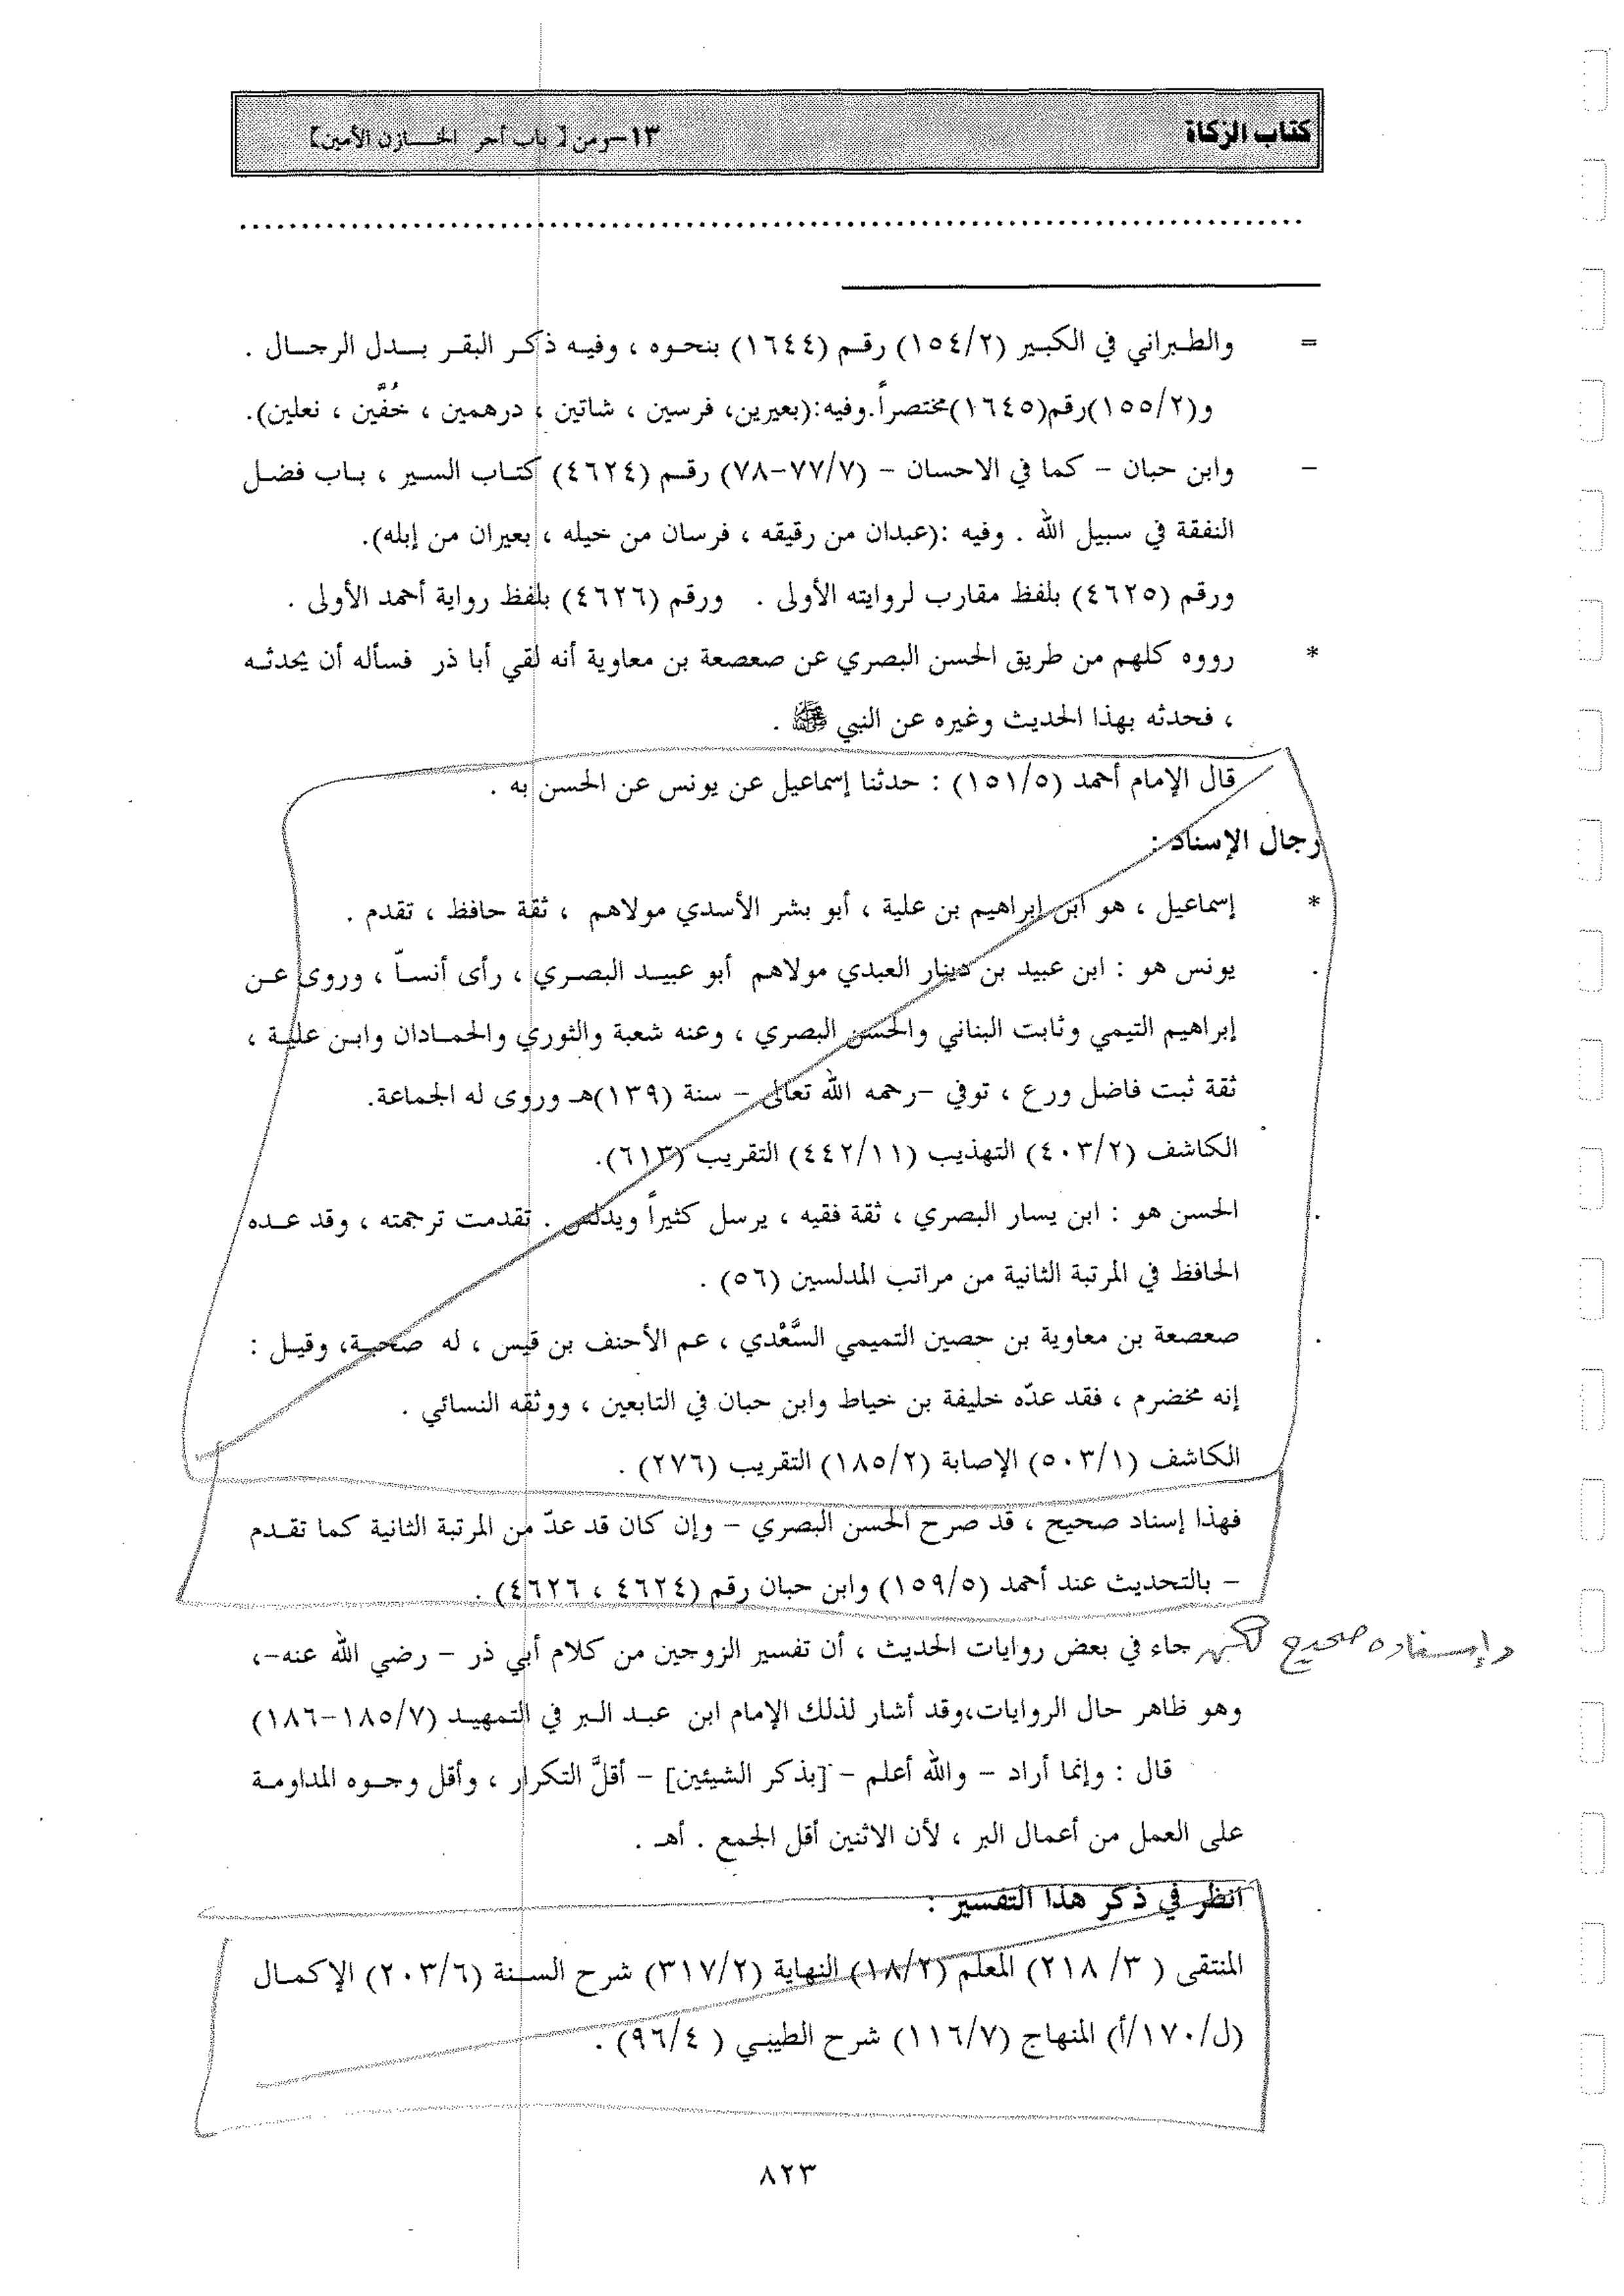 كتاب الزكاة
١٣-ومن [ باب أجر الخازن الأمين]
= والطبراني في الكبير (١٥٤/٢) رقم (١٦٤٤) بنحوه ، وفيه ذكر البقر بدل الرحال .
و(١٥٥/٢)رقم(١٦٤٥)مختصراً.وفيه:(بعيرين، فرسين ، شاتين ، درهمين ، خُفَّين ، نعلين).
- وابن حبان - كما في الاحسان - (٧٧/٧-٧٨) رقم (٤٦٢٤) كتاب السير ، باب فضل
النفقة في سبيل الله . وفيه :(عبدان من رقيقه ، فرسان من خيله ، بعيران من إبله).
ورقم (٤٦٢٥) بلفظ مقارب لروايته الأولى . ورقم (٤٦٢٦) بلفظ رواية أحمد الأولى .
* رووه كلهم من طريق الحسن البصري عن صعصعة بن معاوية أنه لقي أبا ذر فسأله أن يحدثه
، فحدثه بهذا الحديث وغيره عن النبي ﷺ .
قال الإمام أحمد (١٥١/٥) : حدثنا إسماعيل عن يونس عن الحسن به .
رجال الإسناد :
* إسماعيل ، هو ابن إبراهيم بن علية ، أبو بشر الأسدي مولاهم ، ثقة حافظ ، تقدم .
. يونس هو : ابن عبيد بن دينار العبدي مولاهم أبو عبيد البصري ، رأى أنساً ، وروى عن
إبراهيم التيمي وثابت البناني والحسن البصري ، وعنه شعبة والثوري والحمادان وابن علية ،
ثقة ثبت فاضل ورع ، توفي -رحمه الله تعالى - سنة (١٣٩)هـ وروى له الجماعة.
الكاشف (٤٠٣/٢) التهذيب (٤٤٢/١١) التقريب (٦١٣).
. الحسن هو : ابن يسار البصري ، ثقة فقيه ، يرسل كثيراً ويدلس . تقدمت ترجمته ، وقد عده
الحافظ في المرتبة الثانية من مراتب المدلسين (٥٦) .
. صعصعة بن معاوية بن حصين التميمي السَّعْدي ، عم الأحنف بن قيس ، له صحبة، وقيل :
إنه مخضرم ، فقد عدّه خليفة بن خياط وابن حبان في التابعين ، ووثقه النسائي .
الكاشف (٥٠٣/١) الإصابة (١٨٥/٢) التقريب (٢٧٦) .
فهذا إسناد صحيح ، قد صرح الحسن البصري - وإن كان قد عدّ من المرتبة الثانية كما تقدم
- بالتحديث عند أحمد (١٥٩/٥) وابن حبان رقم (٤٦٢٤ ، ٤٦٢٦) .
وإسناده صحيح لكن جاء في بعض روايات الحديث ، أن تفسير الزوجين من كلام أبي ذر - رضي الله عنه-،
وهو ظاهر حال الروايات،وقد أشار لذلك الإمام ابن عبد البر في التمهيد (١٨٥/٧-١٨٦)
قال : وإنما أراد - والله أعلم - [بذكر الشيئين] - أقلَّ التكرار ، وأقل وجوه المداومة
على العمل من أعمال البر ، لأن الاثنين أقل الجمع . أهـ .
. انظر في ذكر هذا التفسير :
المنتقى ( ٣/ ٢١٨) المعلم (١٨/٢) النهاية (٣١٧/٢) شرح السنة (٢٠٣/٦) الإكمال
(ل/١٧٠/أ) المنهاج (١١٦/٧) شرح الطيبي ( ٩٦/٤) .
٨٢٣